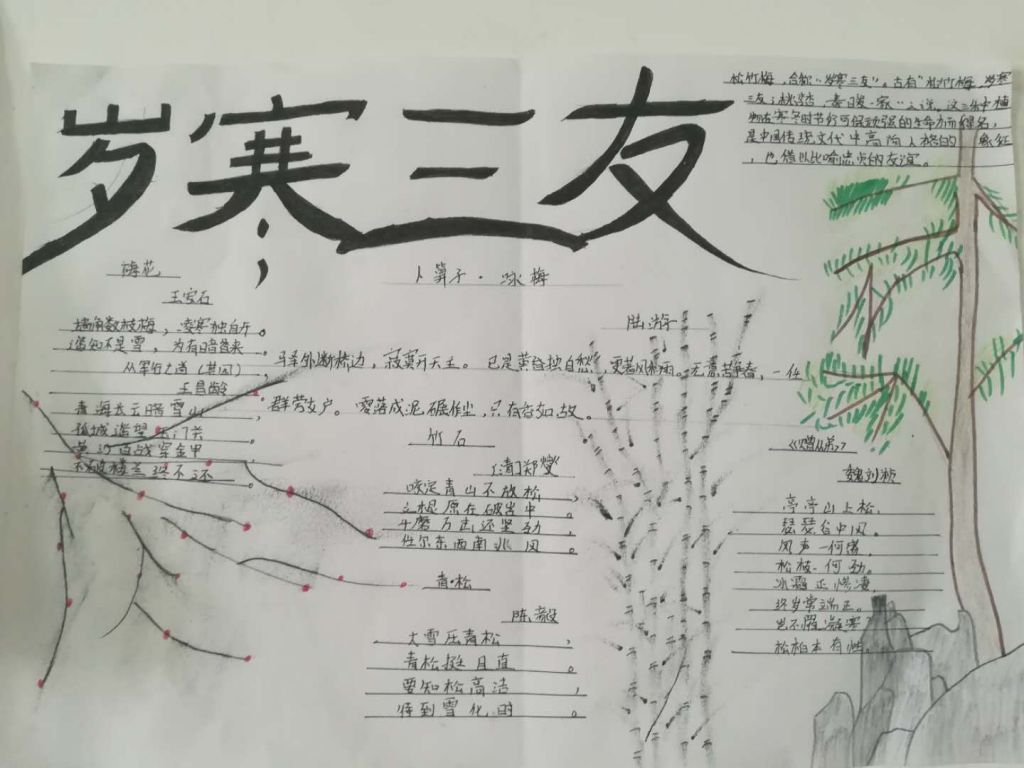 岁寒三友
松竹梅,合称"岁寒三友"。古有"松竹梅,岁寒
三友;桃李杏,春暖一家"之说。这三种植
物在寒冬时节仍可保顽强的生命力而得名,
是中国传统文化中高尚人格的象征,
也借以比喻忠贞的友谊。
梅花
王安石
墙角数枝梅,凌寒独自开。
遥知不是雪,为有暗香来
从军行七首(其四)
王昌龄
青海长云暗雪山,
孤城遥望玉门关。
黄沙百战穿金甲
不破楼兰终不还。
卜算子·咏梅
陆游
驿外断桥边,寂寞开无主。已是黄昏独自愁,更著风和雨。无意苦争春,一任
群芳妒。零落成泥碾作尘,只有香如故。
竹石
[清]郑燮
咬定青山不放松,
立根原在破岩中。
千磨万击还坚劲,
任尔东西南北风。
青·松
陈毅
大雪压青松,
青松挺且直。
要知松高洁,
待到雪化时。
《赠从弟》
魏刘桢
亭亭山上松,
瑟瑟谷中风。
风声一何盛,
松枝一何劲。
冰霜正惨凄,
终岁常端正。
岂不罹凝寒?
松柏本有性。